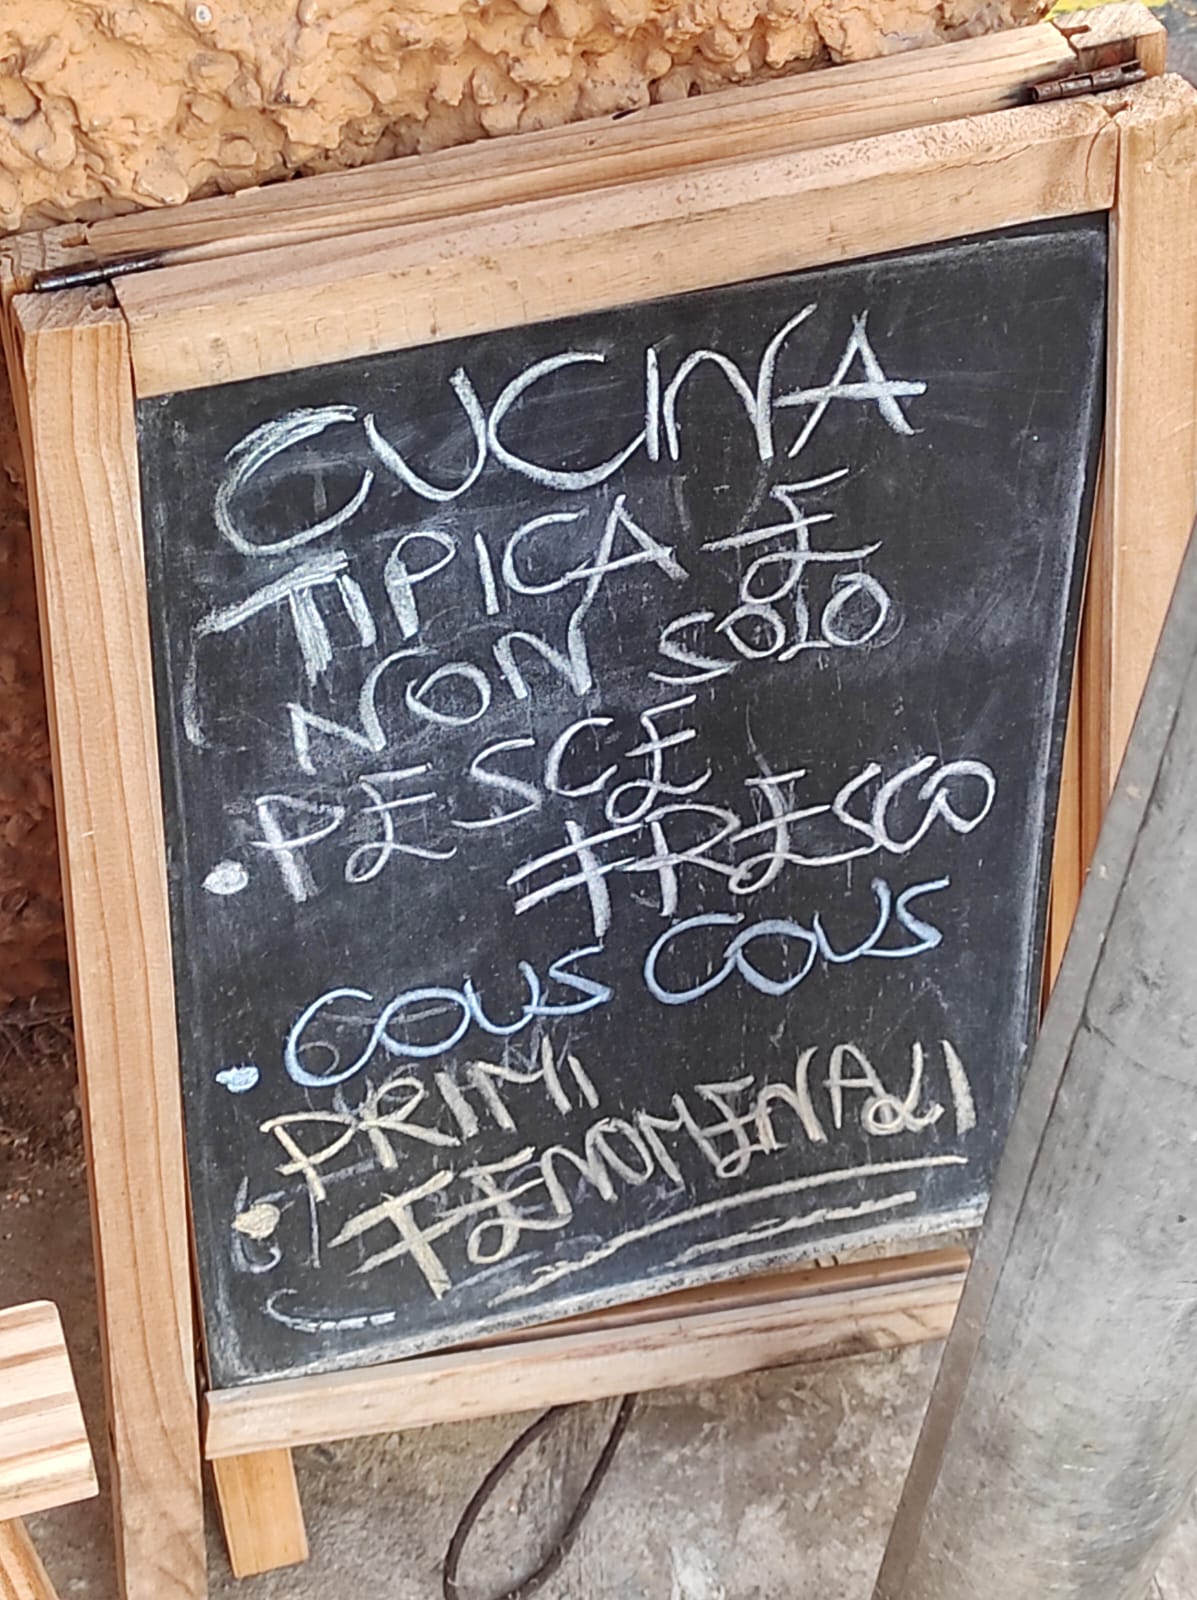 CUCINA
TIPICA E
NON SOLO
• PESCE
FRESCO
• COUS COUS
• PRIMI
FENOMENALI